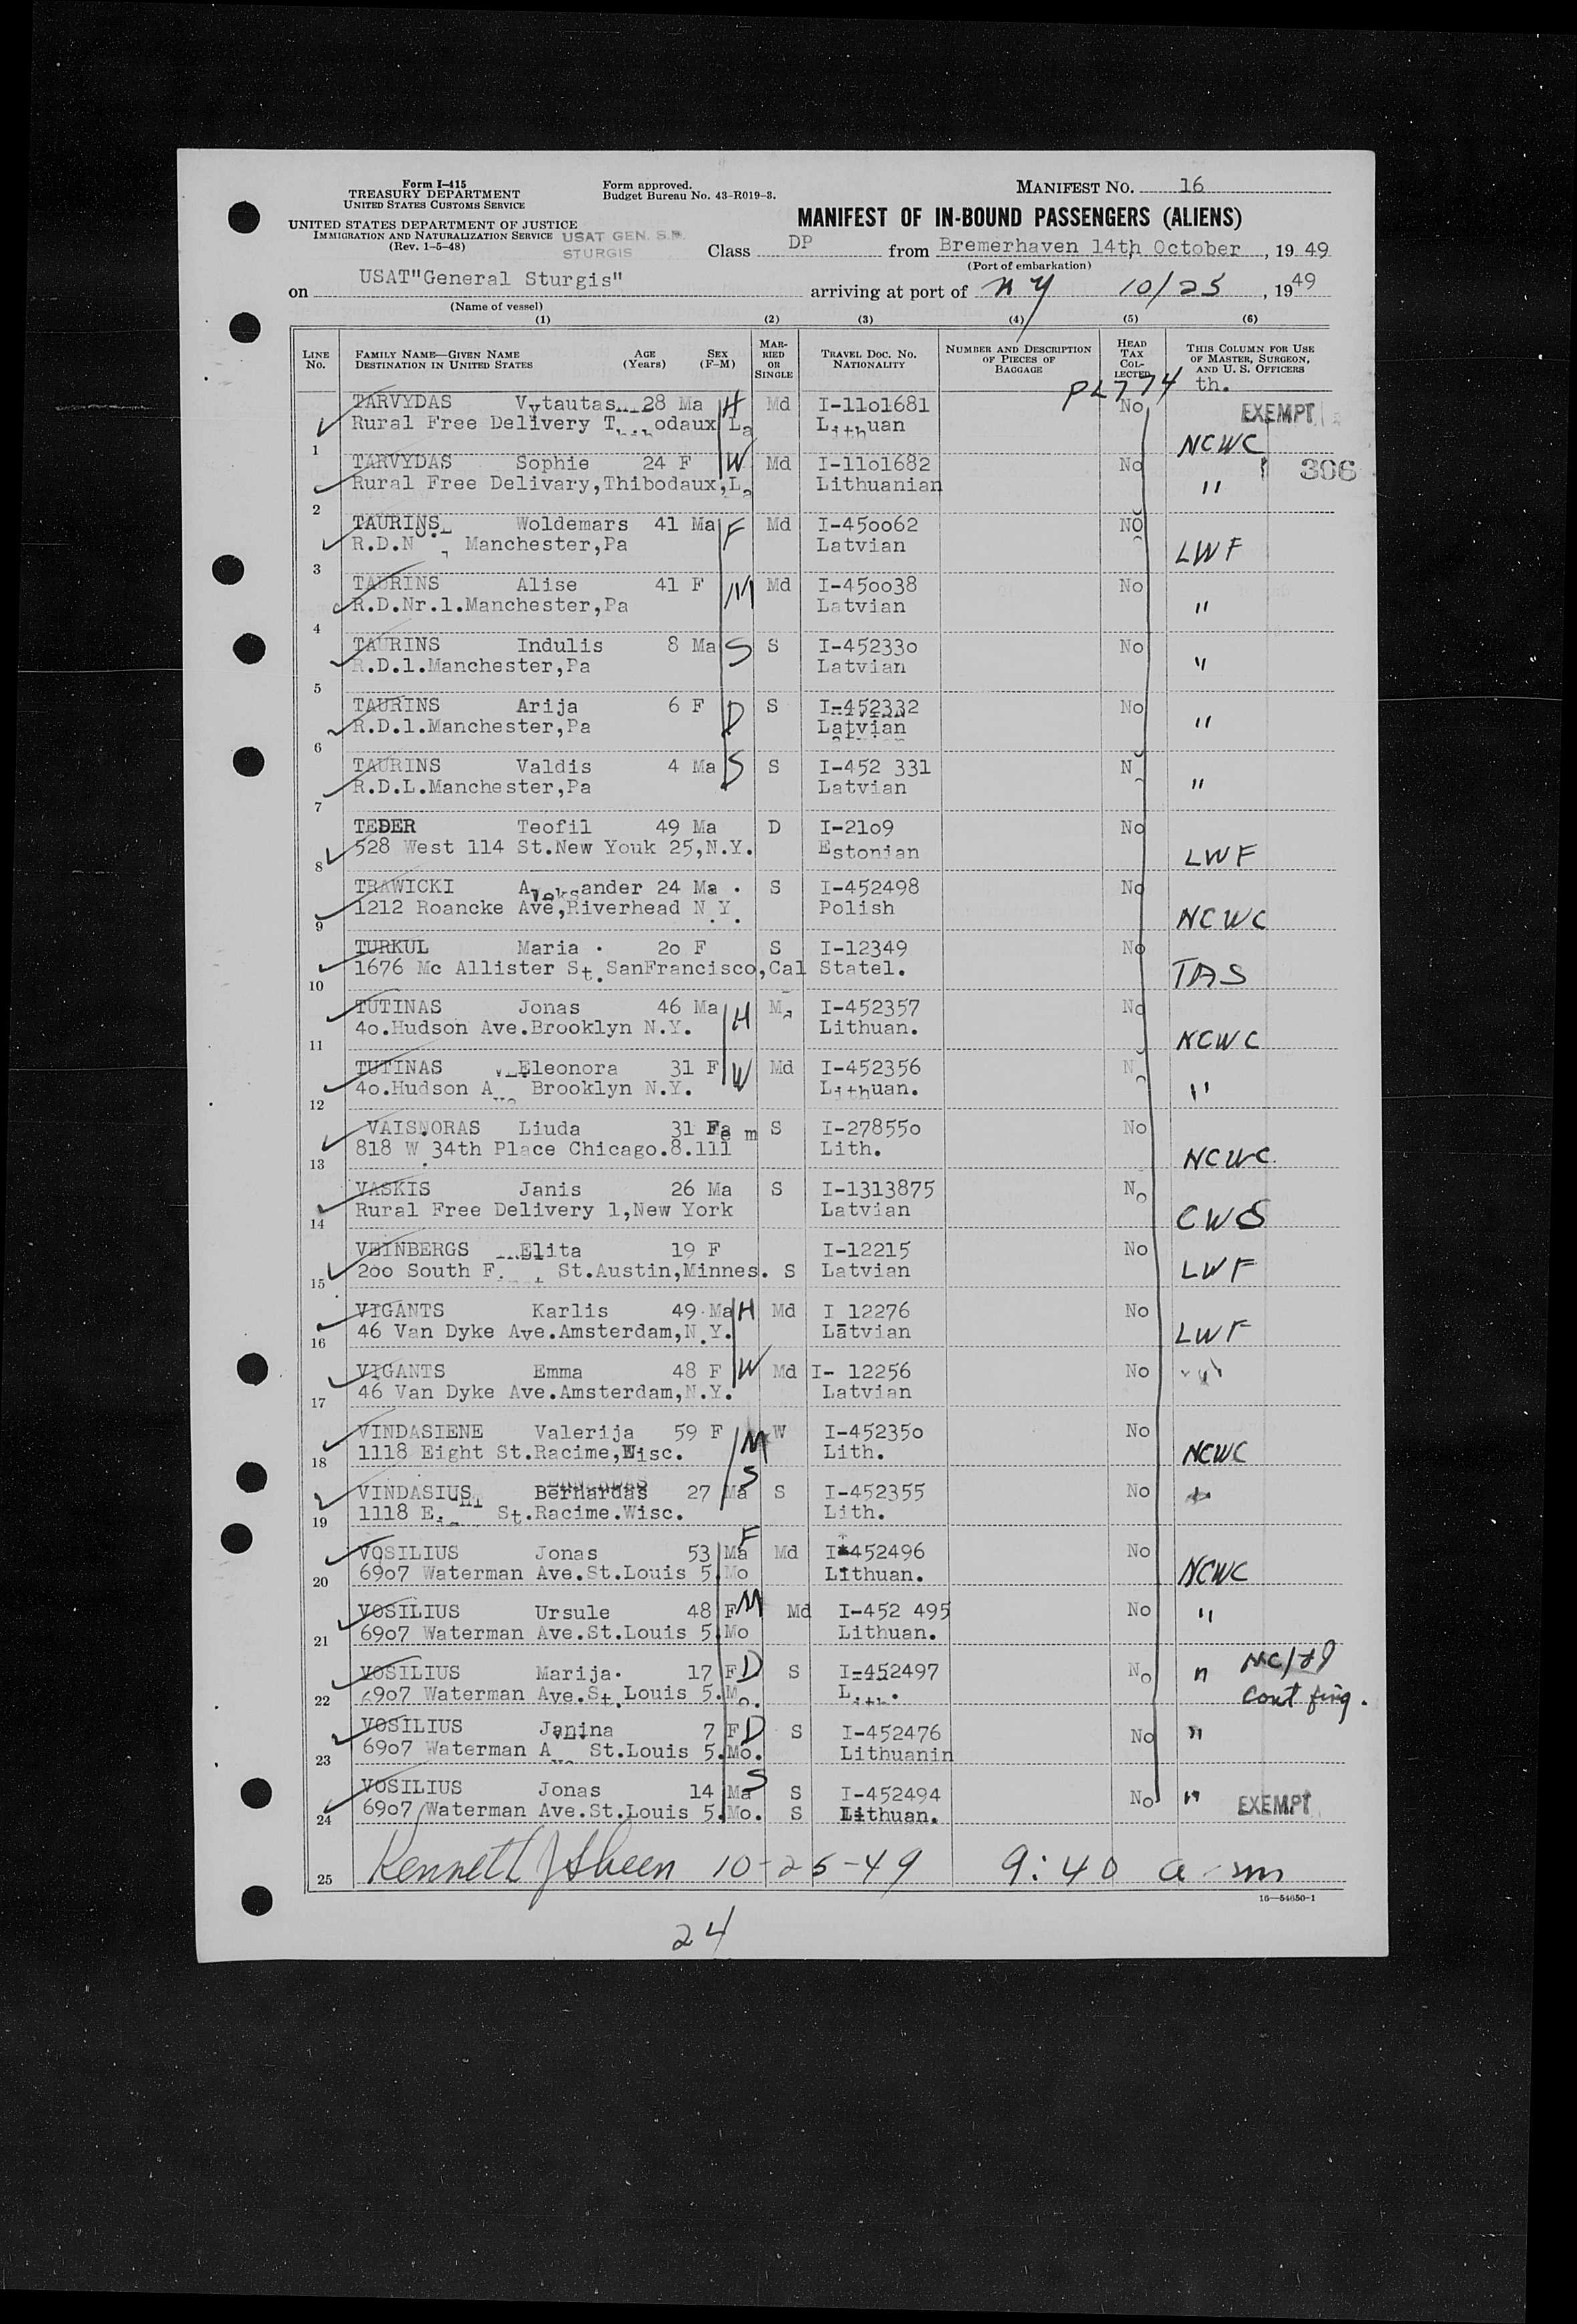 Form I-415
TREASURY DEPARTMENT
UNITED STATES CUSTOMS SERVICE
UNITED STATES DEPARTMENT OF JUSTICE
IMMIGRATION AND NATURALIZATION SERVICE
(Rev. 1-5-48)
Form approved.
Budget Bureau No. 43-R019-3.
MANIFEST NO. 16
MANIFEST OF IN-BOUND PASSENGERS (ALIENS)
USAT GEN. S.D.
STURGIS
Class DP from Bremerhaven 14th October, 19 49
(Port of embarkation)
on USAT"General Sturgis" arriving at port of N Y 10/25, 1949
(Name of vessel)
(1) (2) (3) (4) (5) (6)
LINE No. FAMILY NAME—GIVEN NAME DESTINATION IN UNITED STATES AGE (Years) SEX (F-M) MARRIED OR SINGLE TRAVEL DOC. NO. NATIONALITY NUMBER AND DESCRIPTION OF PIECES OF BAGGAGE HEAD TAX COLLECTED THIS COLUMN FOR USE OF MASTER, SURGEON, AND U. S. OFFICERS
PL774 th.
TARVYDAS Vytautas 28 Ma H Md I-11o1681 No EXEMPT
1 Rural Free Delivery odaux La Lithuan NCWC
TARVYDAS Sophie 24 F W Md I-11o1682 No 306
2 Rural Free Delivary,Thibodaux,La Lithuanian "
TAURINS Woldemars 41 Ma F Md I-45oo62 No
3 R.D.N Manchester,Pa Latvian LWF
TAURINS Alise 41 F M Md I-45oo38 No
4 R.D.Nr.1.Manchester,Pa Latvian "
TAURINS Indulis 8 Ma S S I-45233o No
5 R.D.1.Manchester,Pa Latvian "
TAURINS Arija 6 F D S I-452332 No
6 R.D.1.Manchester,Pa Latvian "
TAURINS Valdis 4 Ma S S I-452 331 N
7 R.D.L.Manchester,Pa Latvian "
TEDER Teofil 49 Ma D I-21o9 No
8 528 West 114 St.New Youk 25,N.Y. Estonian LWF
TRAWICKI Aleksander 24 Ma . S I-452498 No
9 1212 Roancke Ave,Riverhead N.Y. Polish NCWC
TURKUL Maria . 2o F S I-12349 No
10 1676 Mc Allister St.SanFrancisco,Cal Statel. TAS
TUTINAS Jonas 46 Ma H Ma I-452357 No
11 4o.Hudson Ave.Brooklyn N.Y. Lithuan. NCWC
TUTINAS Eleonora 31 F W Md I-452356 N
12 4o.Hudson Ave Brooklyn N.Y. Lithuan. "
VAISNORAS Liuda 31 Fem S I-27855o No
13 818 W.34th Place Chicago.8.111 Lith. NCWC
VASKIS Janis 26 Ma S I-1313875 No
14 Rural Free Delivery 1,New York Latvian CWS
VEINBERGS Elita 19 F I-12215 No
15 2oo South St.Austin,Minnes. S Latvian LWF
VIGANTS Karlis 49 Ma H Md I 12276 No
16 46 Van Dyke Ave.Amsterdam,N.Y. Latvian LWF
VIGANTS Emma 48 F W Md I- 12256 No
17 46 Van Dyke Ave.Amsterdam,N.Y. Latvian "
VINDASIENE Valerija 59 F M W I-45235o No
18 1118 Eight St.Racime,Wisc. Lith. NCWC
VINDASIUS Bernardas 27 Ma S S I-452355 No
19 1118 St.Racime.Wisc. Lith.
VOSILIUS Jonas 53 Ma F Md I-452496 No
20 69o7 Waterman Ave.St.Louis 5.Mo Lithuan. NCWC
VOSILIUS Ursule 48 F M Md I-452 495 No "
21 69o7 Waterman Ave.St.Louis 5.Mo Lithuan.
VOSILIUS Marija. 17 F D S I-452497 No "
22 69o7 Waterman Ave.St.Louis 5.Mo. Lith. Cont fing.
VOSILIUS Janina 7 F D S I-452476 No "
23 69o7 Waterman Ave St.Louis 5.Mo. Lithuanin
VOSILIUS Jonas 14 Ma S S I-452494 No "
24 69o7 Waterman Ave.St.Louis 5.Mo. S Lithuan. EXEMPT
25 Kenneth J Sheen 10-25-49 9:40 a-m
16—54650-1
24